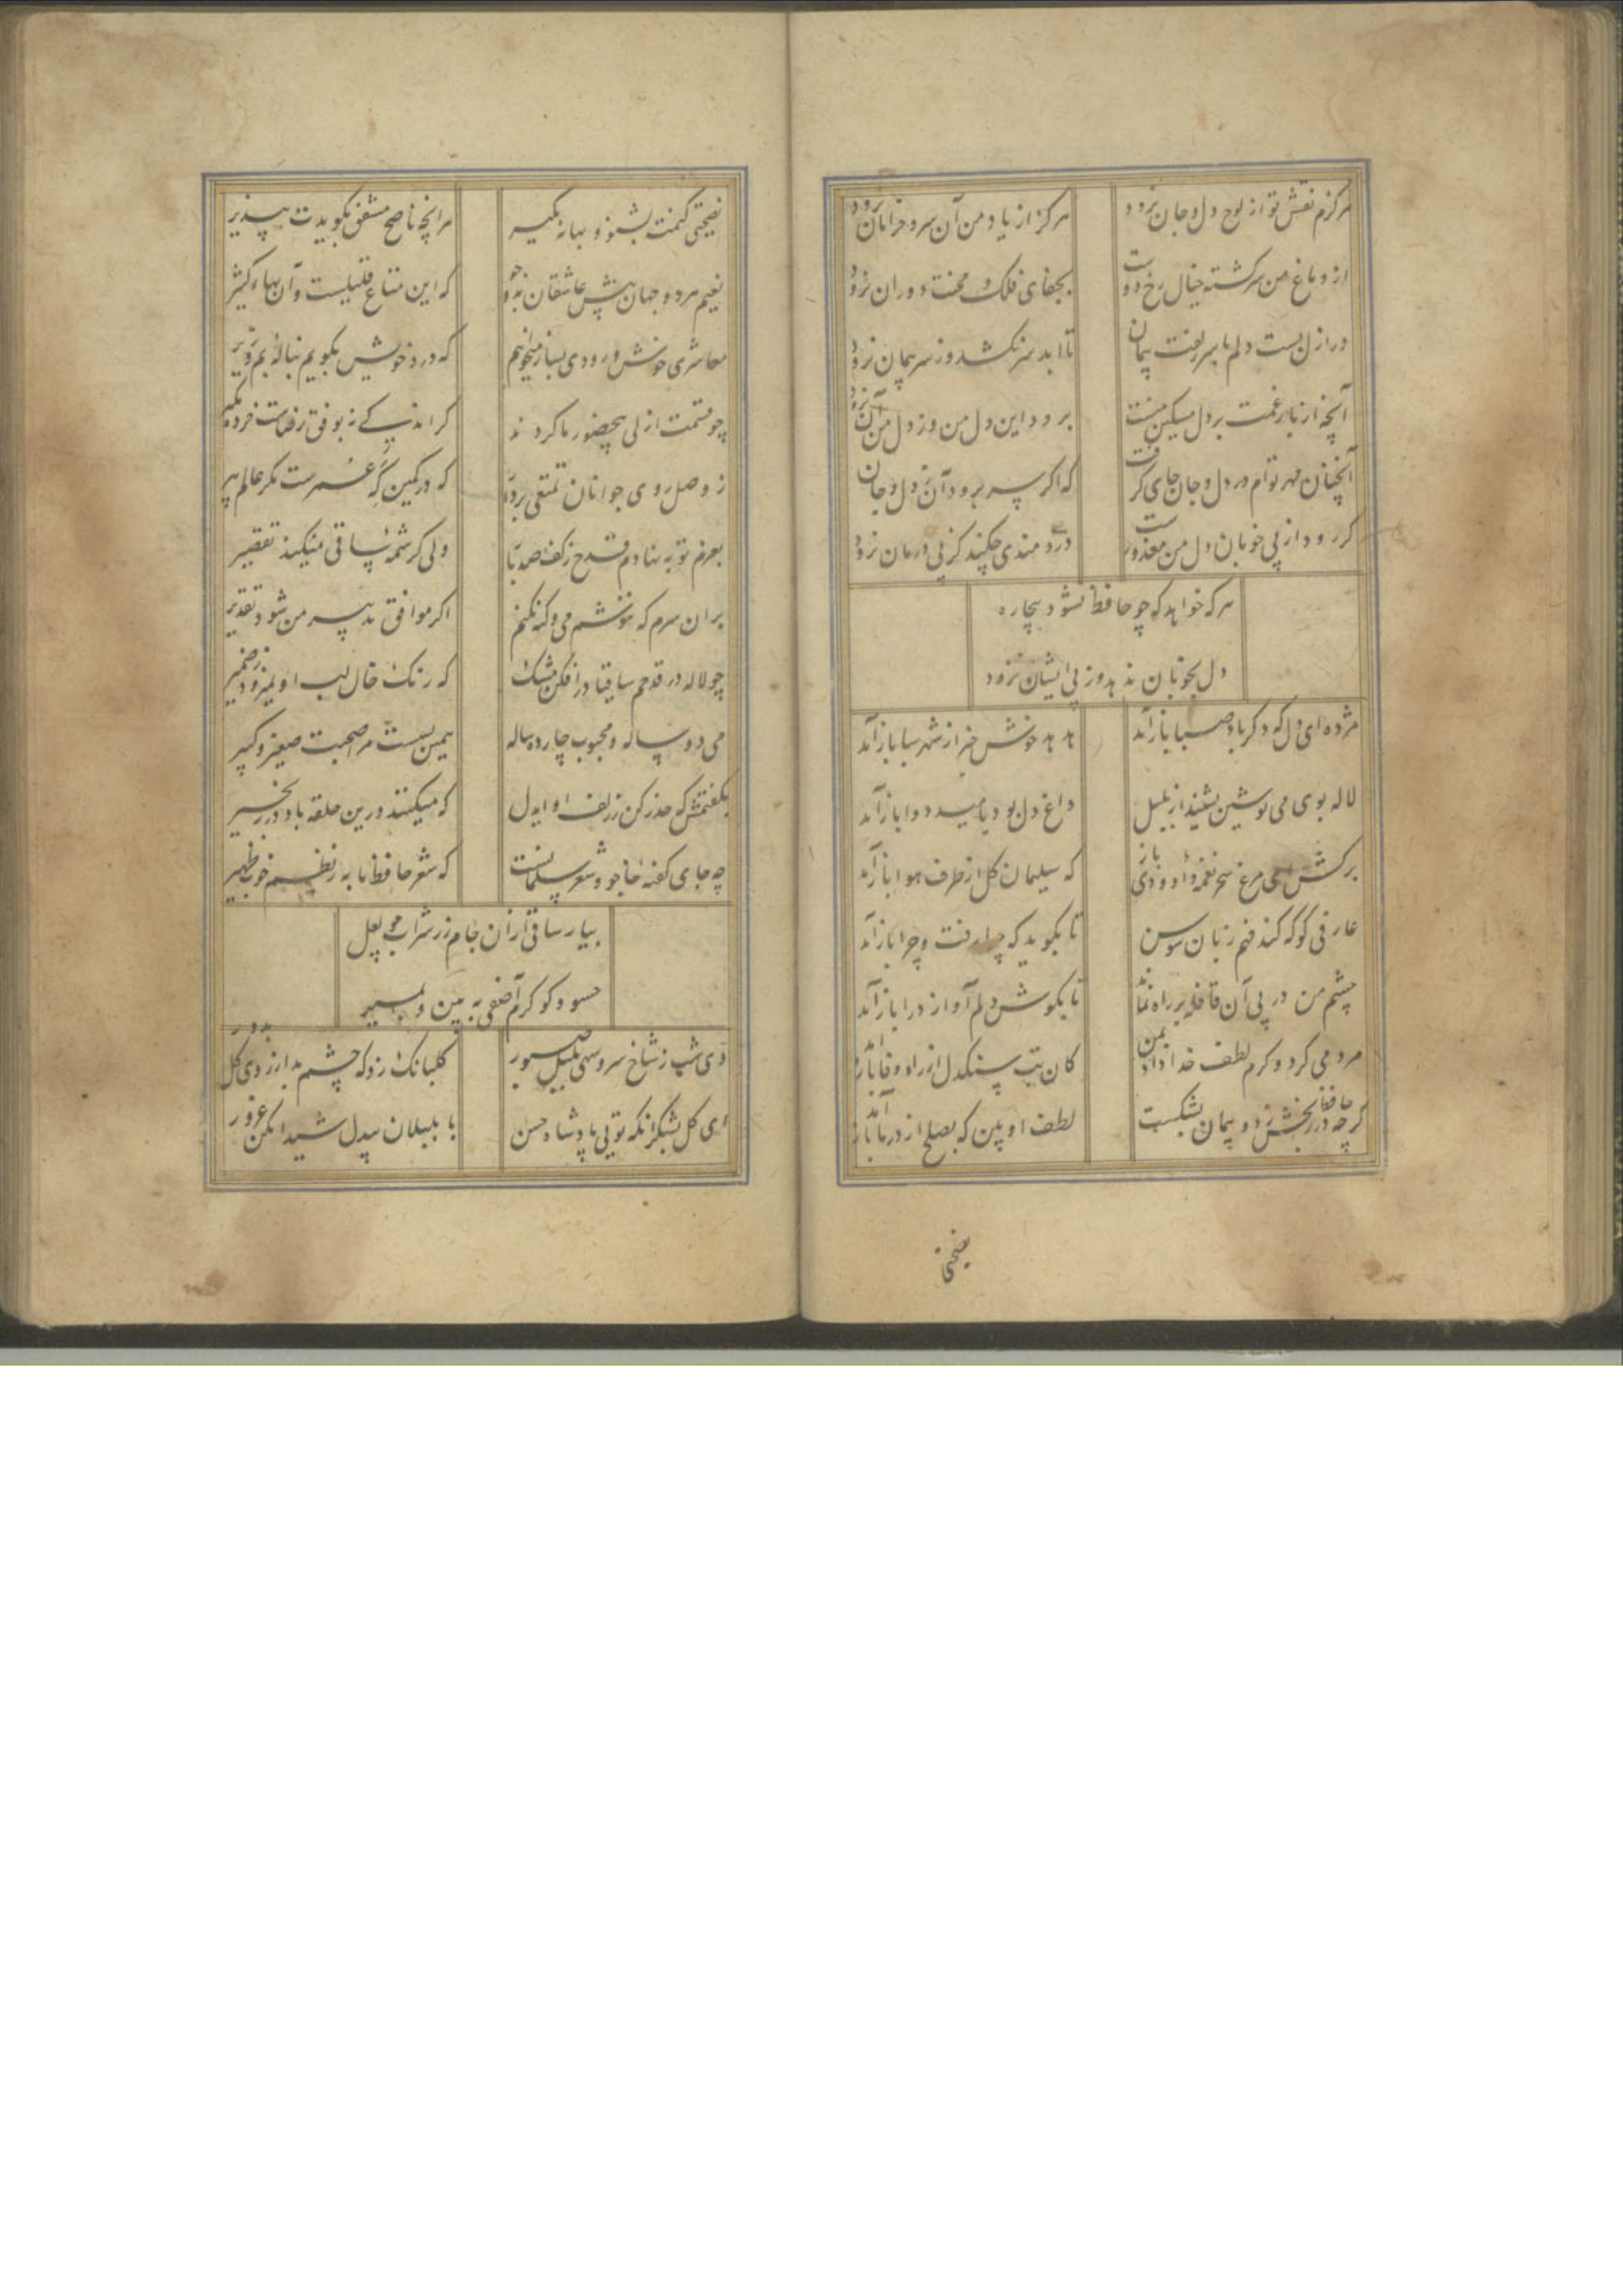 هرگزم نقش تو از لوح دل و جان نرود
هرگز از یاد من آن سرو خرامان نرود
از دماغ من سرگشته خیال رخ دوست
بجفای فلک و محنت دوران نرود
در ازل بست دلم با سر زلفت پیمان
تا ابد سر نکشد وز سر پیمان نرود
آنچه از بار غمت بر دل مسکین منست
برود این دل من وز دل من آن نرود
آنچنان مهر توام در دل و جان جای گرفت
که اگر سر برود آن ز دل و جان
گر رود از پی خوبان دل من معذورست
درد مندی چکند کز پی درمان نرود
هرکه خواهد که چو حافظ نشود بیچاره
دل بخوبان ندهد وز پی ایشان نرود
مژده ای دل که دگر باد صبا باز آمد
هدهد خوش خبر از شهر سبا باز آمد
لاله بوی می نوشین بشنید از بلبل
داغ دل بود بامید دوا باز آمد
برکش ای مرغ سحر نغمه داودی باز
که سلیمان گل از طرف هوا باز آمد
عارفی کو که کند فهم زبان سوسن
تا بگوید که چرا رفت و چرا باز آمد
چشم من در پی آن قافله بر راه نماند
تا بگوش دلم آواز درا باز آمد
مردمی کرد و کرم لطف خداداد بمن
کان بت سنگدل از راه وفا باز آمد
گرچه حافظ در رنجش زد و پیمان بشکست
لطف او بین که بصلح از در ما باز آمد
نصیحتی
نصیحتی کنمت بشنو و بهانه مگیر
هر آنچه ناصح مشفق بگویدت بپذیر
نعیم هر دو جهان پیش عاشقان بدو جو
که این متاع قلیلست و آن بهاء کثیر
معاشری خوش و رودی بساز میخواهم
که درد خویش بگویم بناله بم و زیر
چو قسمت ازلی بیحضور ما کردند
گر اندکی نه بوفق رضاست خرده مگیر
ز وصل روی جوانان تمتعی بردار
که در کمین گه عمرست مکر عالم پیر
بعزم توبه نهادم قدح ز کف صد بار
ولی کرشمه ساقی نمیکند تقصیر
بران سرم که ننوشم می و گنه نکنم
اگر موافق تدبیر من شود تقدیر
چو لاله در قدحم ساقیا در افکن مشک
که رنگ خال لب او نمیرود ز ضمیر
می دو ساله و محبوب چارده ساله
همین بسست مرا صحبت صغیر و کبیر
بگفتمش که حذر کن ز زلف او ایدل
که میکشند درین حلقه باد در زنجیر
چه جای گفته خاجو و شعر سلمانست
که شعر حافظ ما به ز نظم خوب ظهیر
بیار ساقی ازان جام زر شراب چو لعل
حسود گو کرم آصفی ببین و بمیر
دی شب ز شاخ سرو سهی بلبل صبور
گلبانگ زد که چشم بد از روی گل بدور
ای گل بشکر آنکه تویی پادشاه حسن
با بلبلان بیدل شیدا مکن غرور